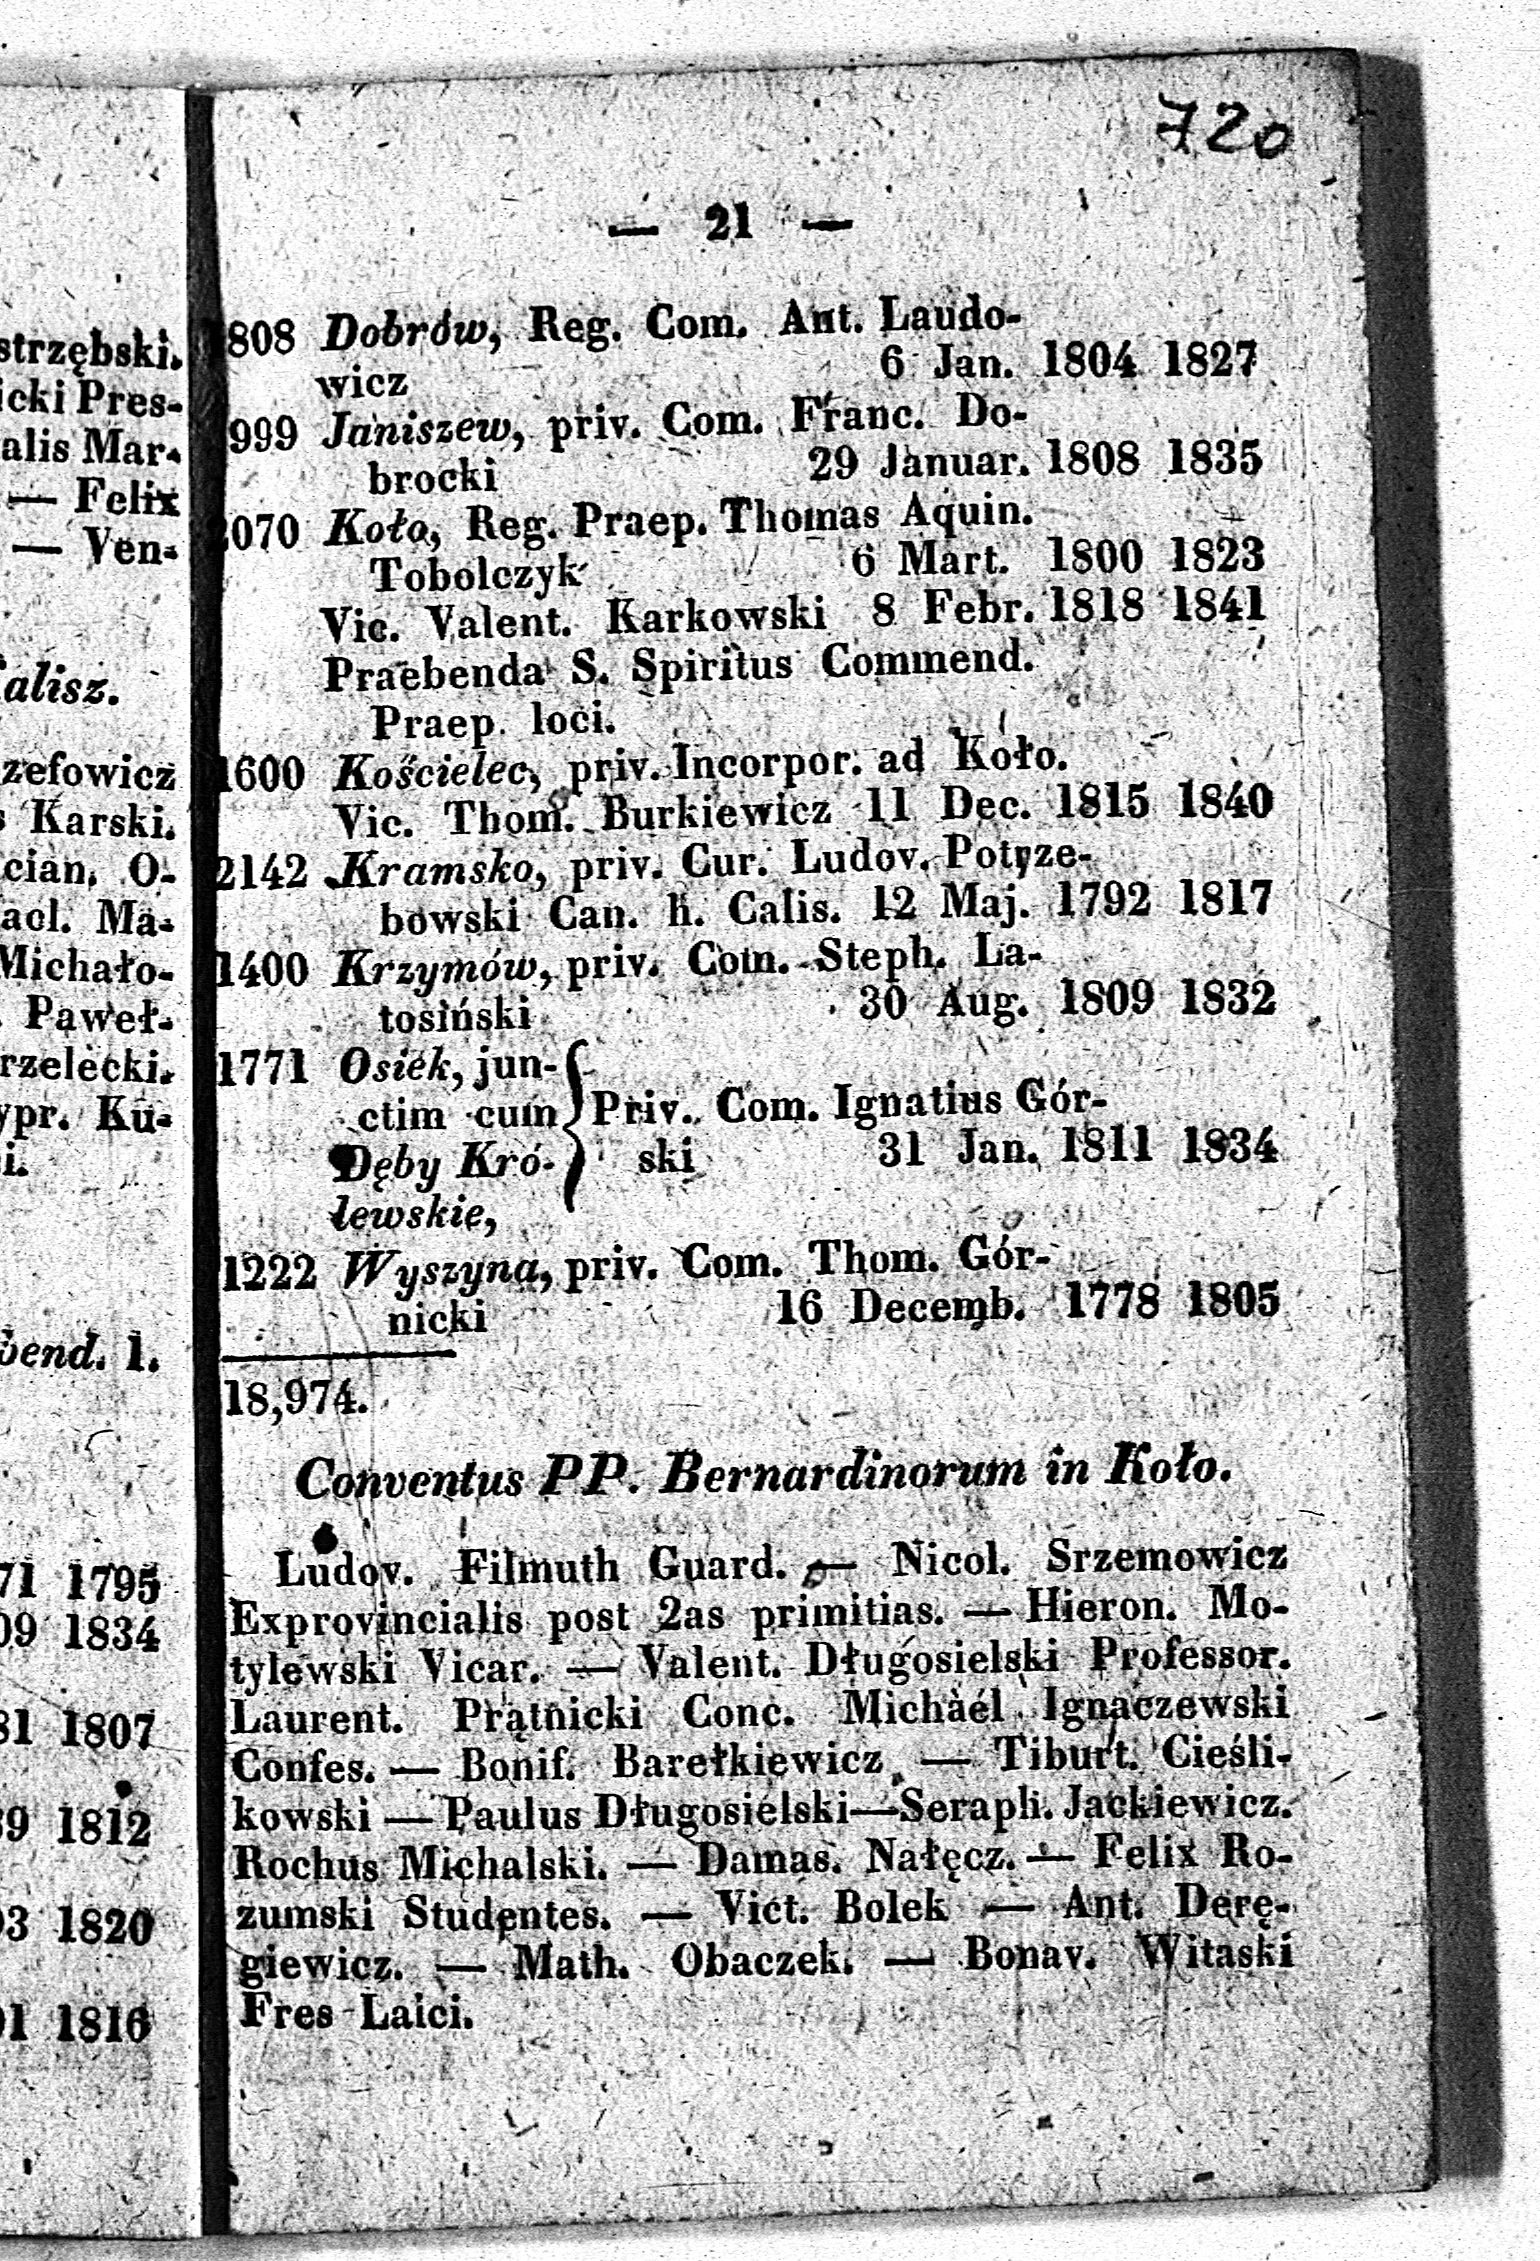 strzębski.
icki Pres-
alis Mar-
— Felix
— Ven-
alisz.
zefowicz
Karski.
cian. O-
acl. Ma-
Michało-
Paweł-
rzelecki.
ypr. Ku-
i.
bend. 1.
71 1795
09 1834
81 1807
39 1812
03 1820
01 1816
720
— 21 —
1808 Dobrów, Reg. Com. Ant. Laudo-
wicz 6 Jan. 1804 1827
999 Janiszew, priv. Com. Franc. Do-
brocki 29 Januar. 1808 1835
2070 Koło, Reg. Praep. Thomas Aquin.
Tobolczyk 6 Mart. 1800 1823
Vic. Valent. Karkowski 8 Febr. 1818 1841
Praebenda S. Spiritus Commend.
Praep. loci.
1600 Kościelec, priv. Incorpor. ad Koło.
Vic. Thom. Burkiewicz 11 Dec. 1815 1840
2142 Kramsko, priv. Cur. Ludov. Potrze-
bowski Can. h. Calis. 12 Maj. 1792 1817
1400 Krzymów, priv. Com. Steph. La-
tosiński 30 Aug. 1809 1832
1771 Osiek, jun-
ctim cum Priv. Com. Ignatius Gór-
Dęby Kró- ski 31 Jan. 1811 1834
lewskie,
1222 Wyszyna, priv. Com. Thom. Gór-
nicki 16 Decemb. 1778 1805
18,974.
Conventus PP. Bernardinorum in Koło.
Ludov. Filmuth Guard. — Nicol. Srzemowicz
Exprovincialis post 2as primitias. — Hieron. Mo-
tylewski Vicar. — Valent. Długosielski Professor.
Laurent. Prątnicki Conc. Michaél Ignaczewski
Confes. — Bonif. Barełkiewicz — Tiburt. Cieśli-
kowski — Paulus Długosielski — Seraph. Jackiewicz.
Rochus Michalski. — Damas. Nałęcz. — Felix Ro-
zumski Studentes. — Vict. Bolek — Ant. Derę-
giewicz. — Math. Obaczek. — Bonav. Witaski
Fres Laici.